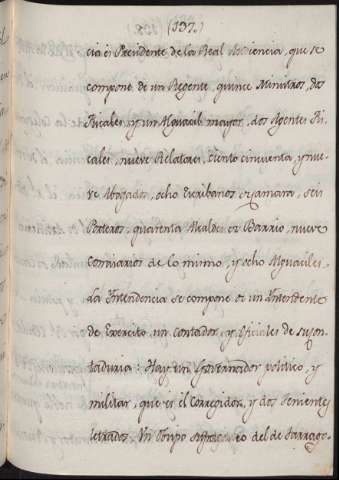 (137.)
cia es Presidente de la Real Audiencia, que se
compone de un Regente, quince Ministros, dos
Fiscales, y un Alguacil mayor, dos Agentes Fis-
cales, nueve Relatores, ciento cinquenta y nue-
ve Abogados, ocho Escribanos de Camara, seis
Porteros, quarenta Alcaldes de Barrio, nueve
Comisarios de lo mismo, y ocho Alguaciles.
La Intendencia se compone de un Intendente
de Exercito, un contador, y oficiales de su con-
taduria: Hay un Governador politico, y
militar, que es el Corregidor, y dos Tenientes
letrados. Un Obispo sufraganeo del de Tarrago-